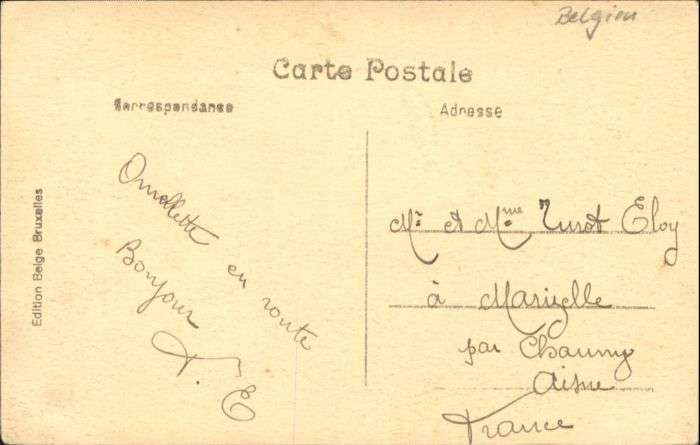 Belgien
Carte Postale
Correspondance
Adresse
Edition Belge Bruxelles
Omellette en route
Bonjour
T. E
Mr et Mme Turot Eloy
à Marizelle
par Chauny
Aisne
France